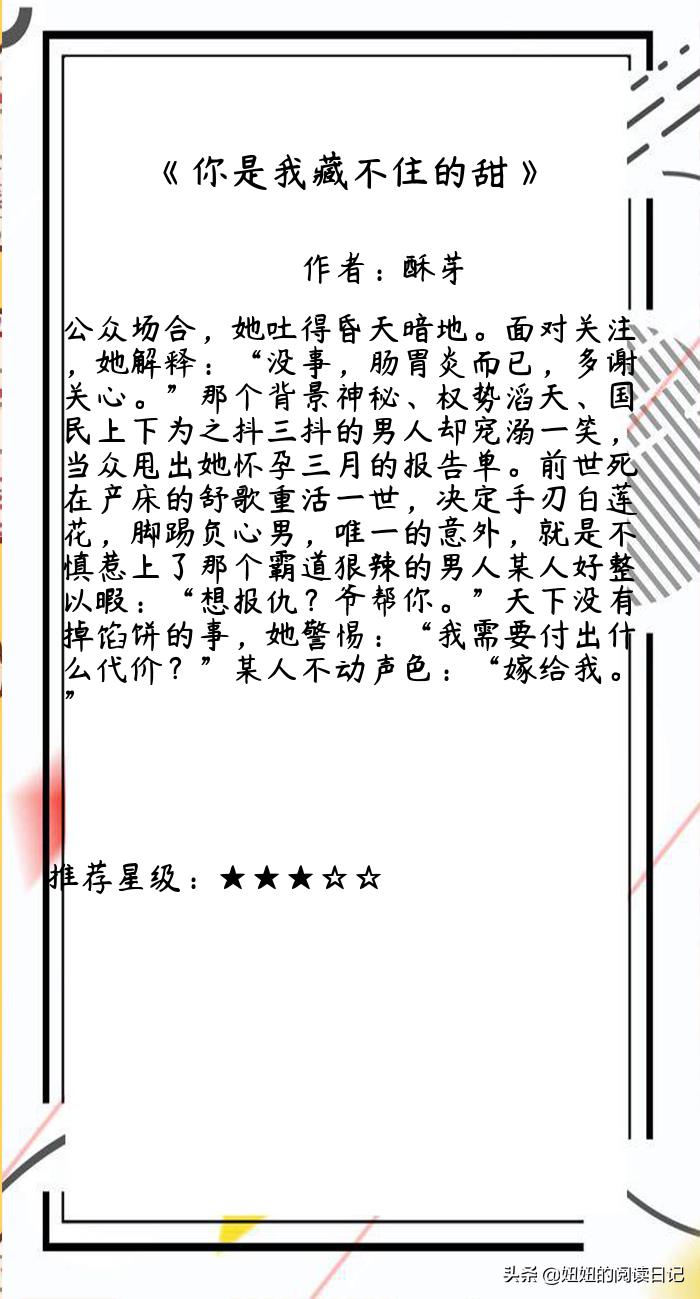 《你是我藏不住的甜》
作者：酥芽
公众场合，她吐得昏天暗地。面对关注
，她解释：“没事，肠胃炎而已，多谢
关心。”那个背景神秘、权势滔天、国
民上下为之抖三抖的男人却宠溺一笑，
当众甩出她怀孕三月的报告单。前世死
在产床的舒歌重活一世，决定手刃白莲
花，脚踢负心男，唯一的意外，就是不
慎惹上了那个霸道狠辣的男人某人好整
以暇：“想报仇？爷帮你。”天下没有
掉馅饼的事，她警惕：“我需要付出什
么代价？”某人不动声色：“嫁给我。
”
推荐星级：★★★☆☆
头条 @妞妞的阅读日记